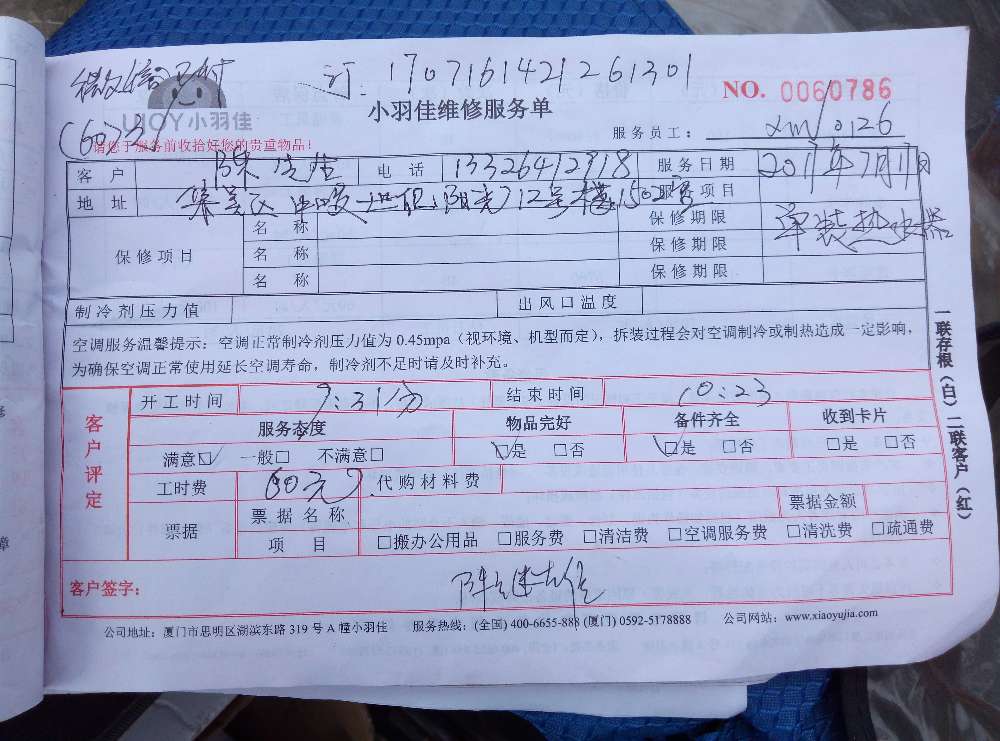 微信已付 订:1707161421261301 NO. 0060786
UJOY小羽佳 小羽佳维修服务单
(60元) 服务员工: xm/0126
请您于服务前收拾好您的贵重物品!
客户 陈先生 电话 13326412918 服务日期 2017年7月17日
地址 集美区 阳光712号楼1502室 服务项目 单装热水器
保修项目 名称 保修期限
名称 保修期限
名称 保修期限
制冷剂压力值 出风口温度
空调服务温馨提示:空调正常制冷剂压力值为0.45mpa(视环境、机型而定),拆装过程会对空调制冷或制热造成一定影响,
为确保空调正常使用延长空调寿命,制冷剂不足时请及时补充。
客户评定 开工时间 9:31分 结束时间 10:23
服务态度 物品完好 备件齐全 收到卡片
满意☑ 一般□ 不满意□ ☑是 □否 ☑是 □否 □是 □否
工时费 60元 代购材料费
票据 票据名称 票据金额
项目 □搬办公用品 □服务费 □清洁费 □空调服务费 □清洗费 □疏通费
客户签字:
公司地址:厦门市思明区湖滨东路319号A幢小羽佳 服务热线:(全国) 400-6655-888 (厦门) 0592-5178888 公司网站:www.xiaoyujia.com
一联存根(白)二联客户(红)